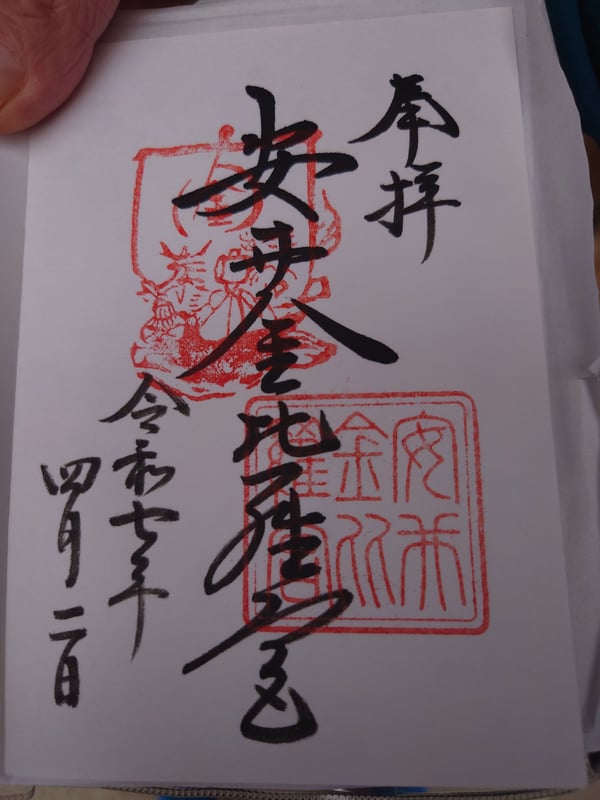 奉拝
安井金比羅宮
安井金比羅宮
令和七年
四月二日